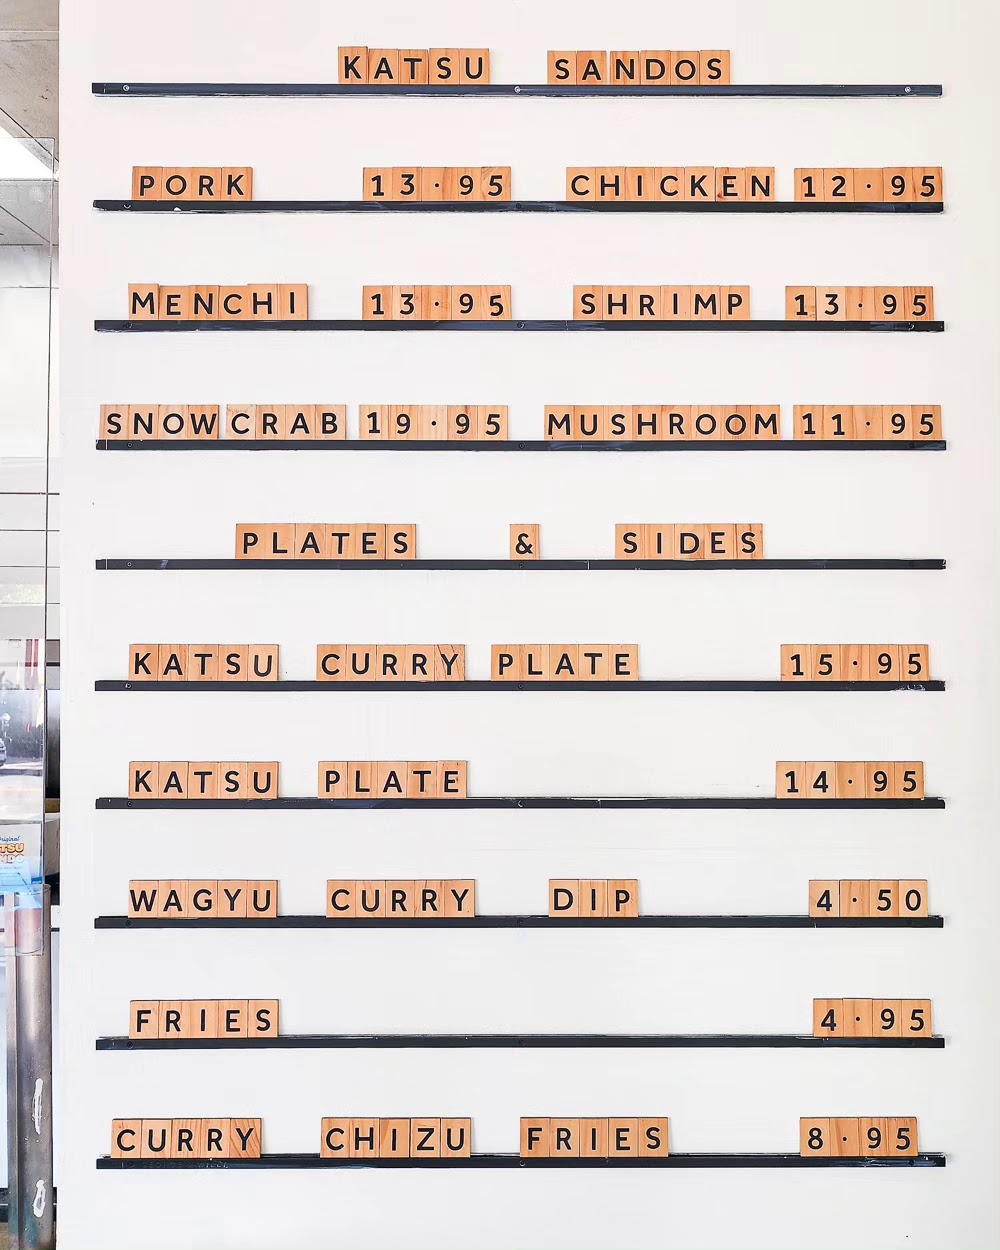 KATSU SANDOS
PORK 13·95 CHICKEN 12·95
MENCHI 13·95 SHRIMP 13·95
SNOWCRAB 19·95 MUSHROOM 11·95
PLATES & SIDES
KATSU CURRY PLATE 15·95
KATSU PLATE 14·95
WAGYU CURRY DIP 4·50
FRIES 4·95
CURRY CHIZU FRIES 8·95